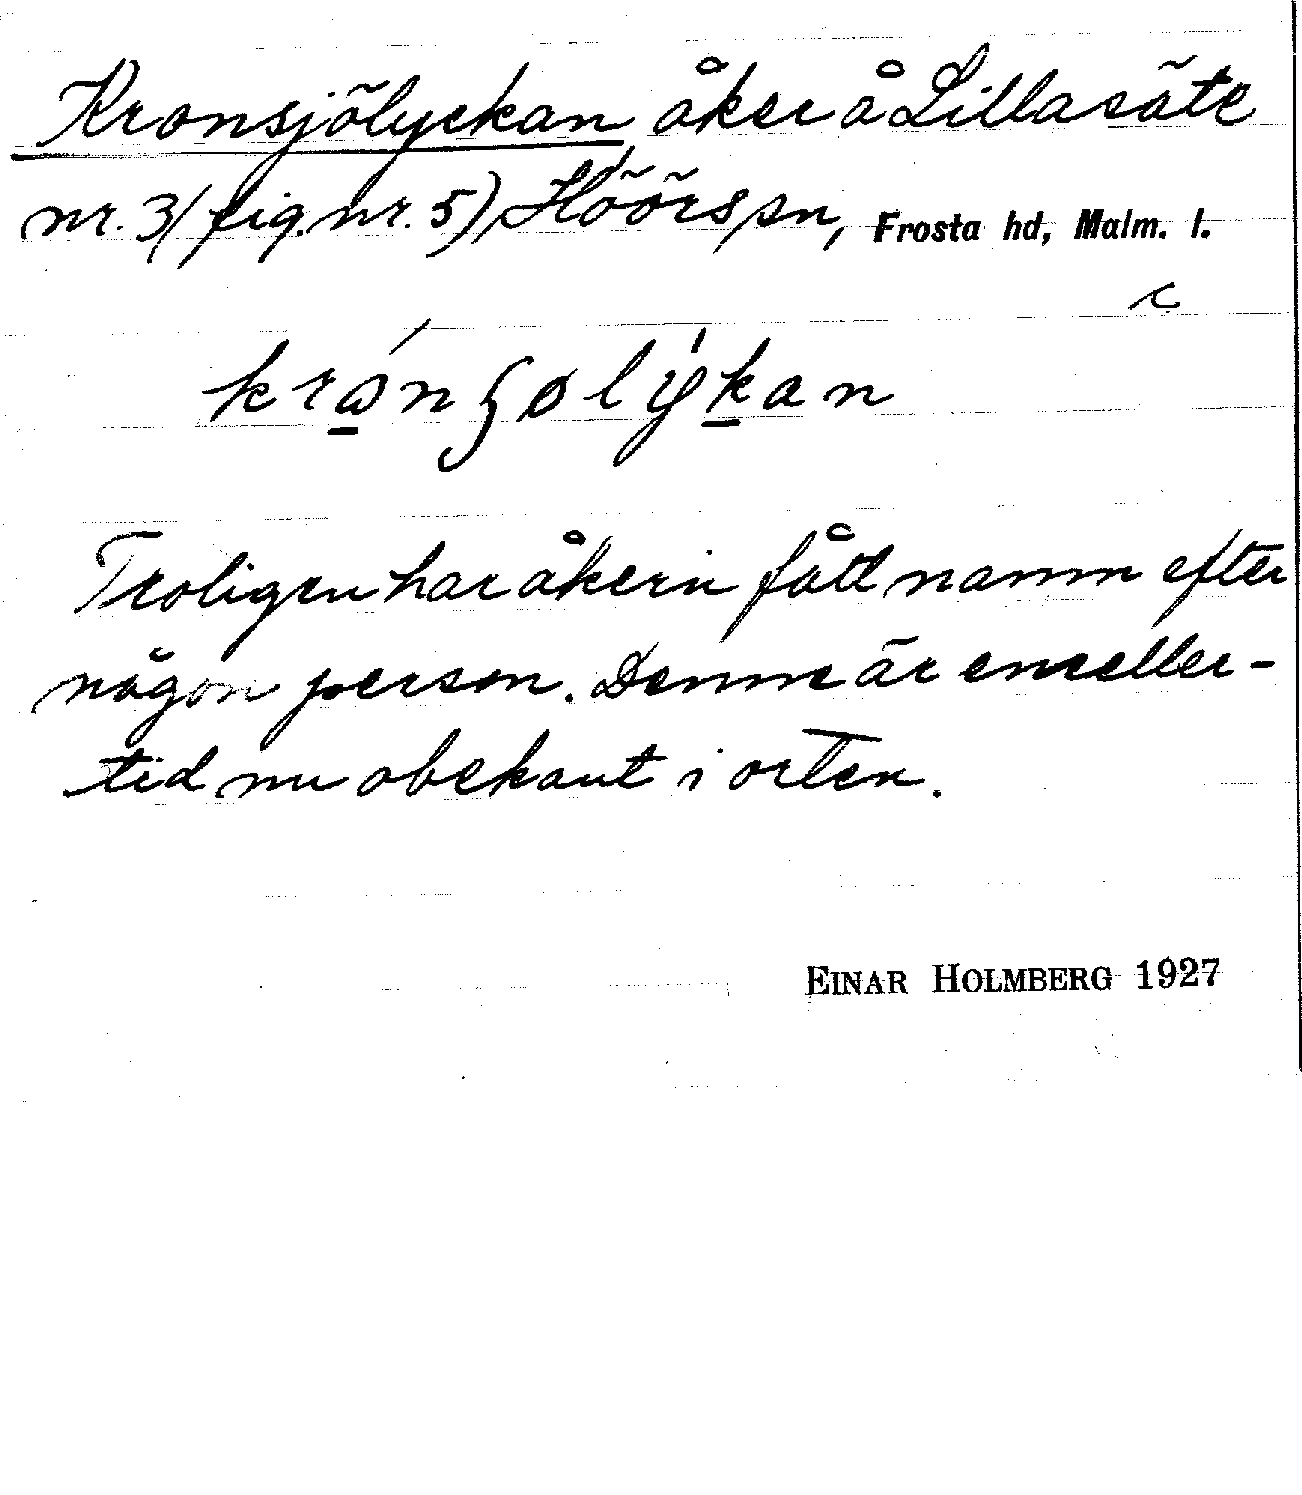 Kronsjölyckan åker å Lillasäte
nr. 3 (fig. nr. 5) Höörs sn, Frosta hd, Malm. l.
c
Troligen har åkern fått namn efter
någon person. Denne är emeller-
tid nu obekant i orten.
EINAR HOLMBERG 1927